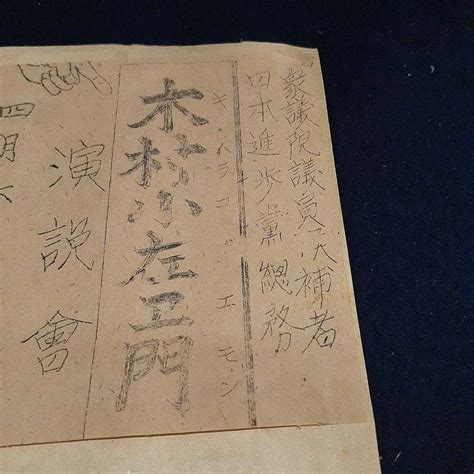 衆議院議員候補者
日本進歩黨總務
キムラコザエモン
木村小左エ門
演説會
四月六